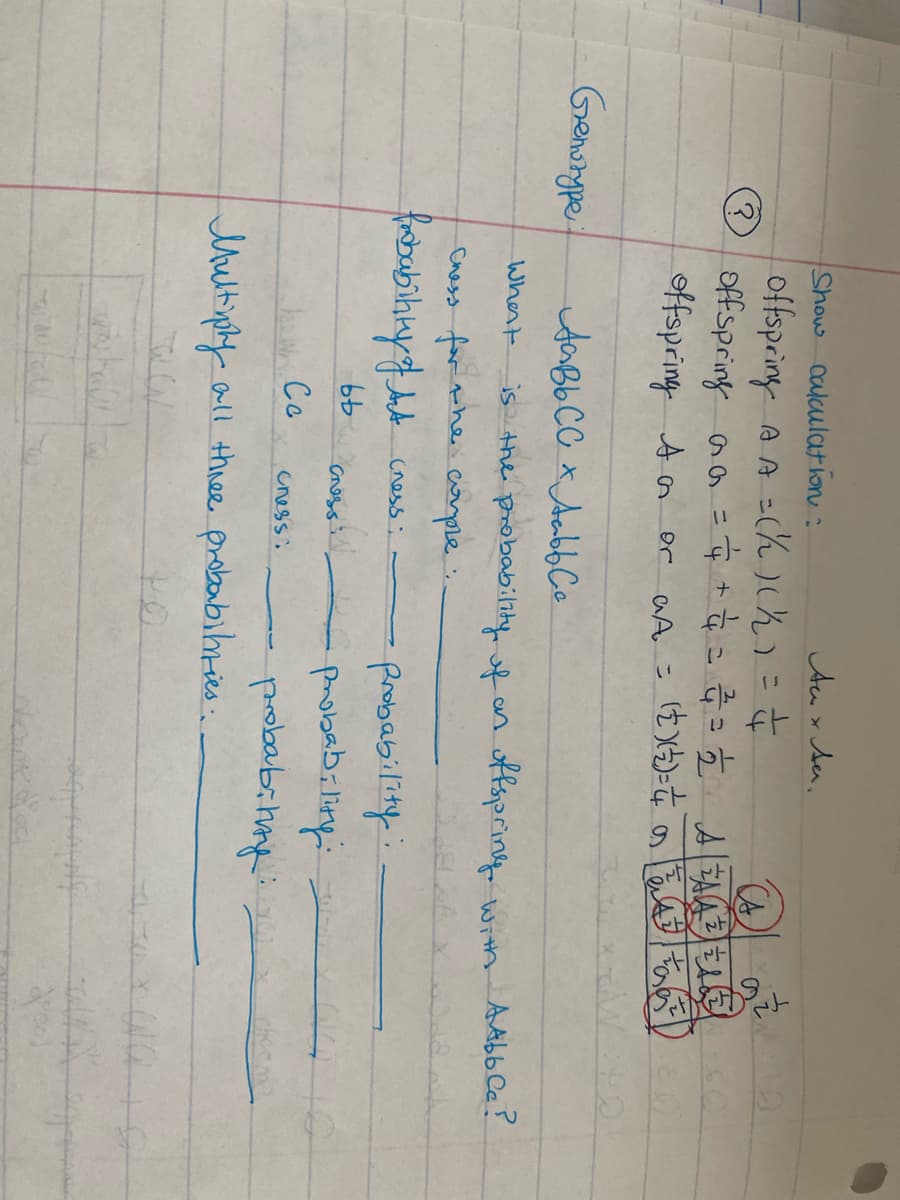 Show calculation: Aa x Aa.
offspring A A = (½)(½) = ¼
? offspring a a = ¼ + ¼ = 2/4 = ½
offspring A a or aA = (½)(½) = ¼
A a ½
A ½ A A ½ ½ A a ½
a ½ a A ½ ½ a a ½
Genotype: AaBbCC x AabbCc
What is the probability of an offspring with AAbbCc?
Cross for the couple:
Probability of AA cross: Probability:
bb cross: Probability:
Cc cross: probability:
Multiply all three probabilities: